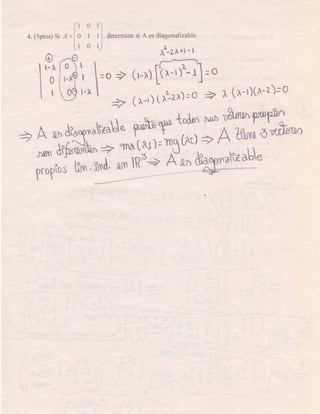 4. (5ptos) Si A = (1 0 1; 0 1 1; 1 0 1), determine si A es diagonalizable.
λ²-2λ+1-1
|1-λ 0 1; 0 1-λ 1; 1 0 1-λ| =0 ⇒ (1-λ)[(λ-1)²-1]=0
⇒ (λ-1)(λ²-2λ)=0 ⇒ λ(λ-1)(λ-2)=0
⇒ A es diagonalizable puesto que todos sus valores propios
son diferentes ⇒ ma(λi)=mg(λi) ⇒ A tiene 3 vectores
propios lin. ind. en ℝ³ ⇒ A es diagonalizable